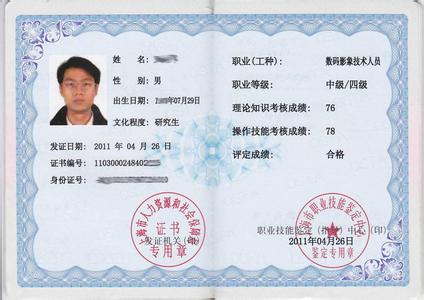 姓 名:
性 别: 男
出生日期: 年07月29日
文化程度: 研究生
发证日期: 2011 年 04 月 26 日
证书编号: 1103000248402
身份证号:
上海市人力资源和社会保障局
证书
专用章
发证机关(印)
职业(工种): 数码影象技术人员
职业等级: 中级/四级
理论知识考核成绩: 76
操作技能考核成绩: 78
评定成绩: 合格
上海市职业技能鉴定中心
鉴定专用章
职业技能鉴定(指导)中心(印)
2011年04月26日